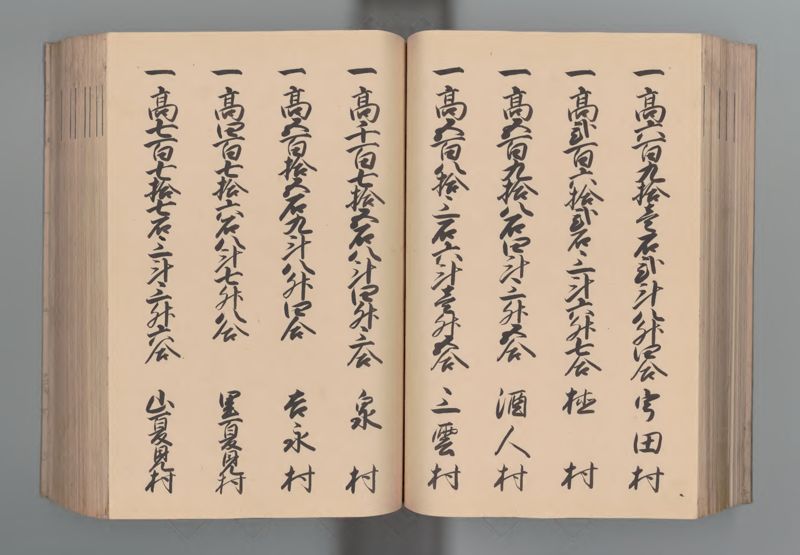 一高六百九拾壱石弐斗八升四合 宇田村
一高弐百六拾弐石三斗六升七合 植村
一高五百九拾八石四斗三升五合 酒人村
一高五百八拾三石六斗壱升五合 三雲村
一高千百七拾五石八斗四升三合 泉村
一高五百拾五石九斗八升四合 吉永村
一高四百七拾六石八斗七升八合 里夏見村
一高七百七拾七石三斗三升六合 山夏見村